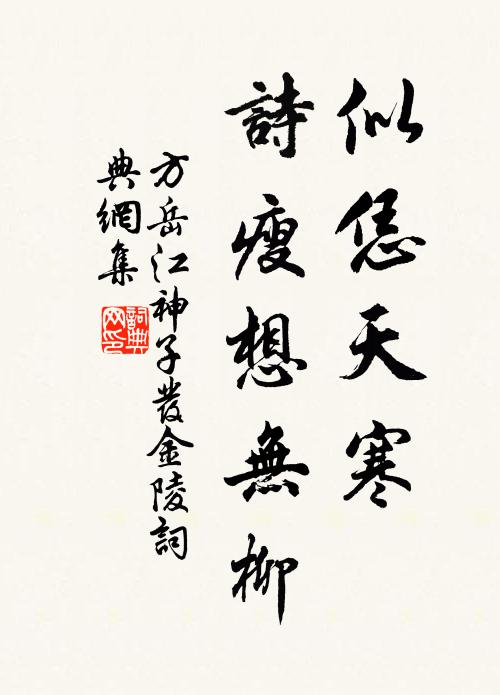 似恁天寒
詩瘦想無柳
方岳江神子發金陵詞
典網集
詞典網印